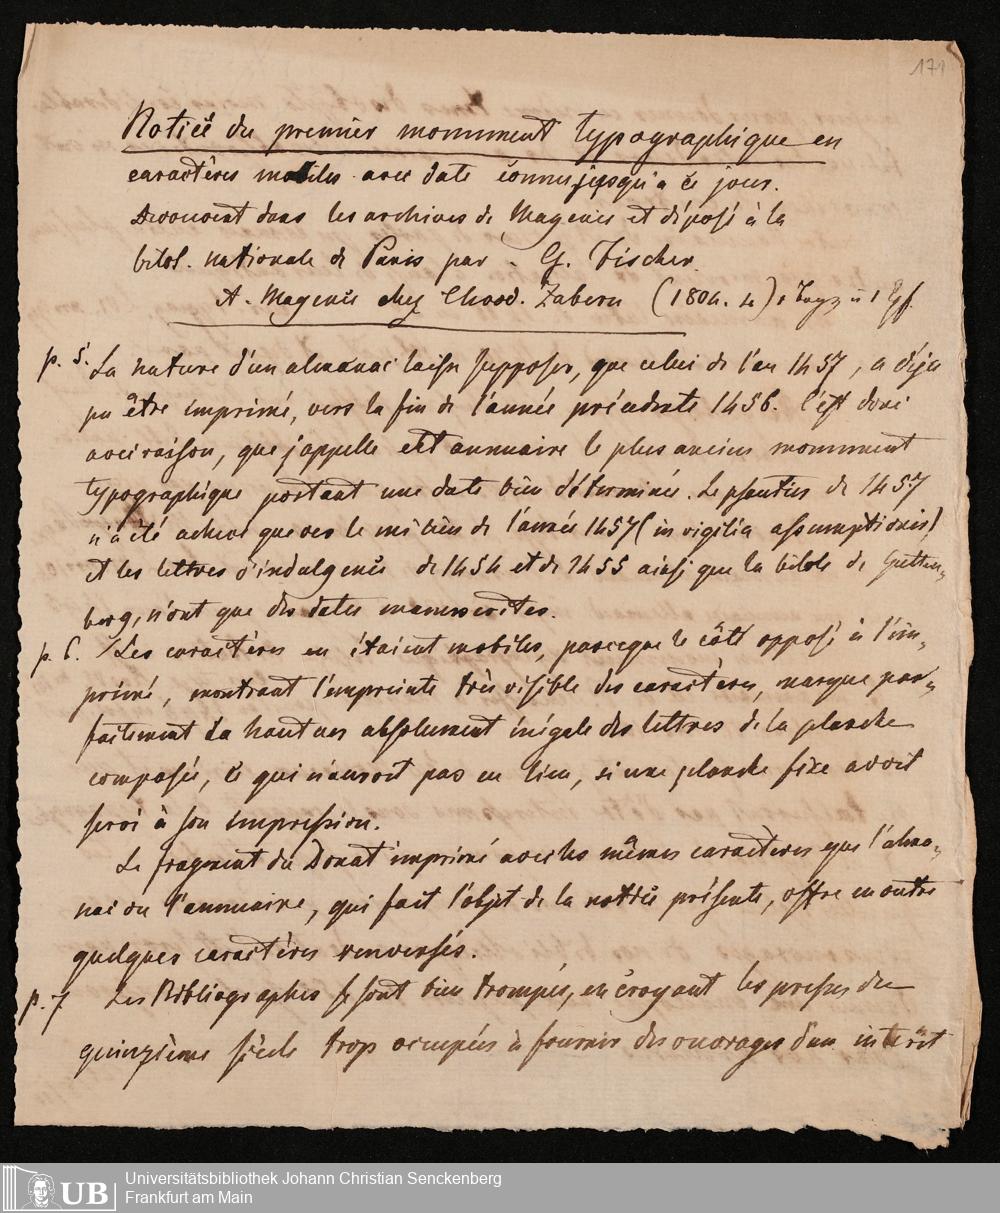 171
Notice du premier monument typographique en
caractères mobiles avec date connu jusqu'a ce jour.
Decouvert dans les archives de Mayence et déposé à la
bibl. nationale de Paris par G. Fischer.
A Mayence chez Theod. Zabern (1804. 4)
p. 5. La nature d'un almanac laisse supposer, que celui de l'an 1457, a déja
pu être imprimé, vers la fin de l'année précedente 1456. C'est donc
avec raison, que j'appelle cet annuaire le plus ancien monument
typographique portant une date bien déterminée. Le psautier de 1457
n'a été achevé que vers le milieu de l'année 1457 (in vigilia assumptionis)
et les lettres d'indulgence de 1454 et de 1455 ainsi que la bible de Gutten„
berg, n'ont que des dates manuscrites.
p. 6. Les caractères en étaient mobiles, parceque le côté opposé à l'im„
primé, montrant l'empreinte très visible des caractères, marque par„
faitement la hauteur absolument inégale des lettres de la planche
composée, ce qui n'auroit pas eu lieu, si une planche fixe avoit
servi à son impression.
Le fragment du Donat imprimé avec les mêmes caracteres que l'alma„
nac ou l'annuaire, qui fait l'objet de la notice présente, offre en outre
quelques caractères renversés.
p. 7. Les Bibliographes se sont bien trompés, en croyant les presses du
quinzième siècle trop occupées à fournir des ouvrages d'un intérêt
UB
Universitätsbibliothek Johann Christian Senckenberg
Frankfurt am Main